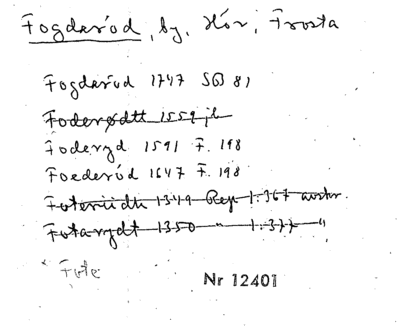 Fogdaröd, by, Hör, Frosta
Fogdaröd 1747 SGB 81
Foderødtt 1559 jb
Foderyd 1591 F. 198
Foederöd 1647 F. 198
Foteriidh 1349 Rep. 1:367 avskr.
Fotarydt 1350 " 1:377 "
* Fote
Nr 12401